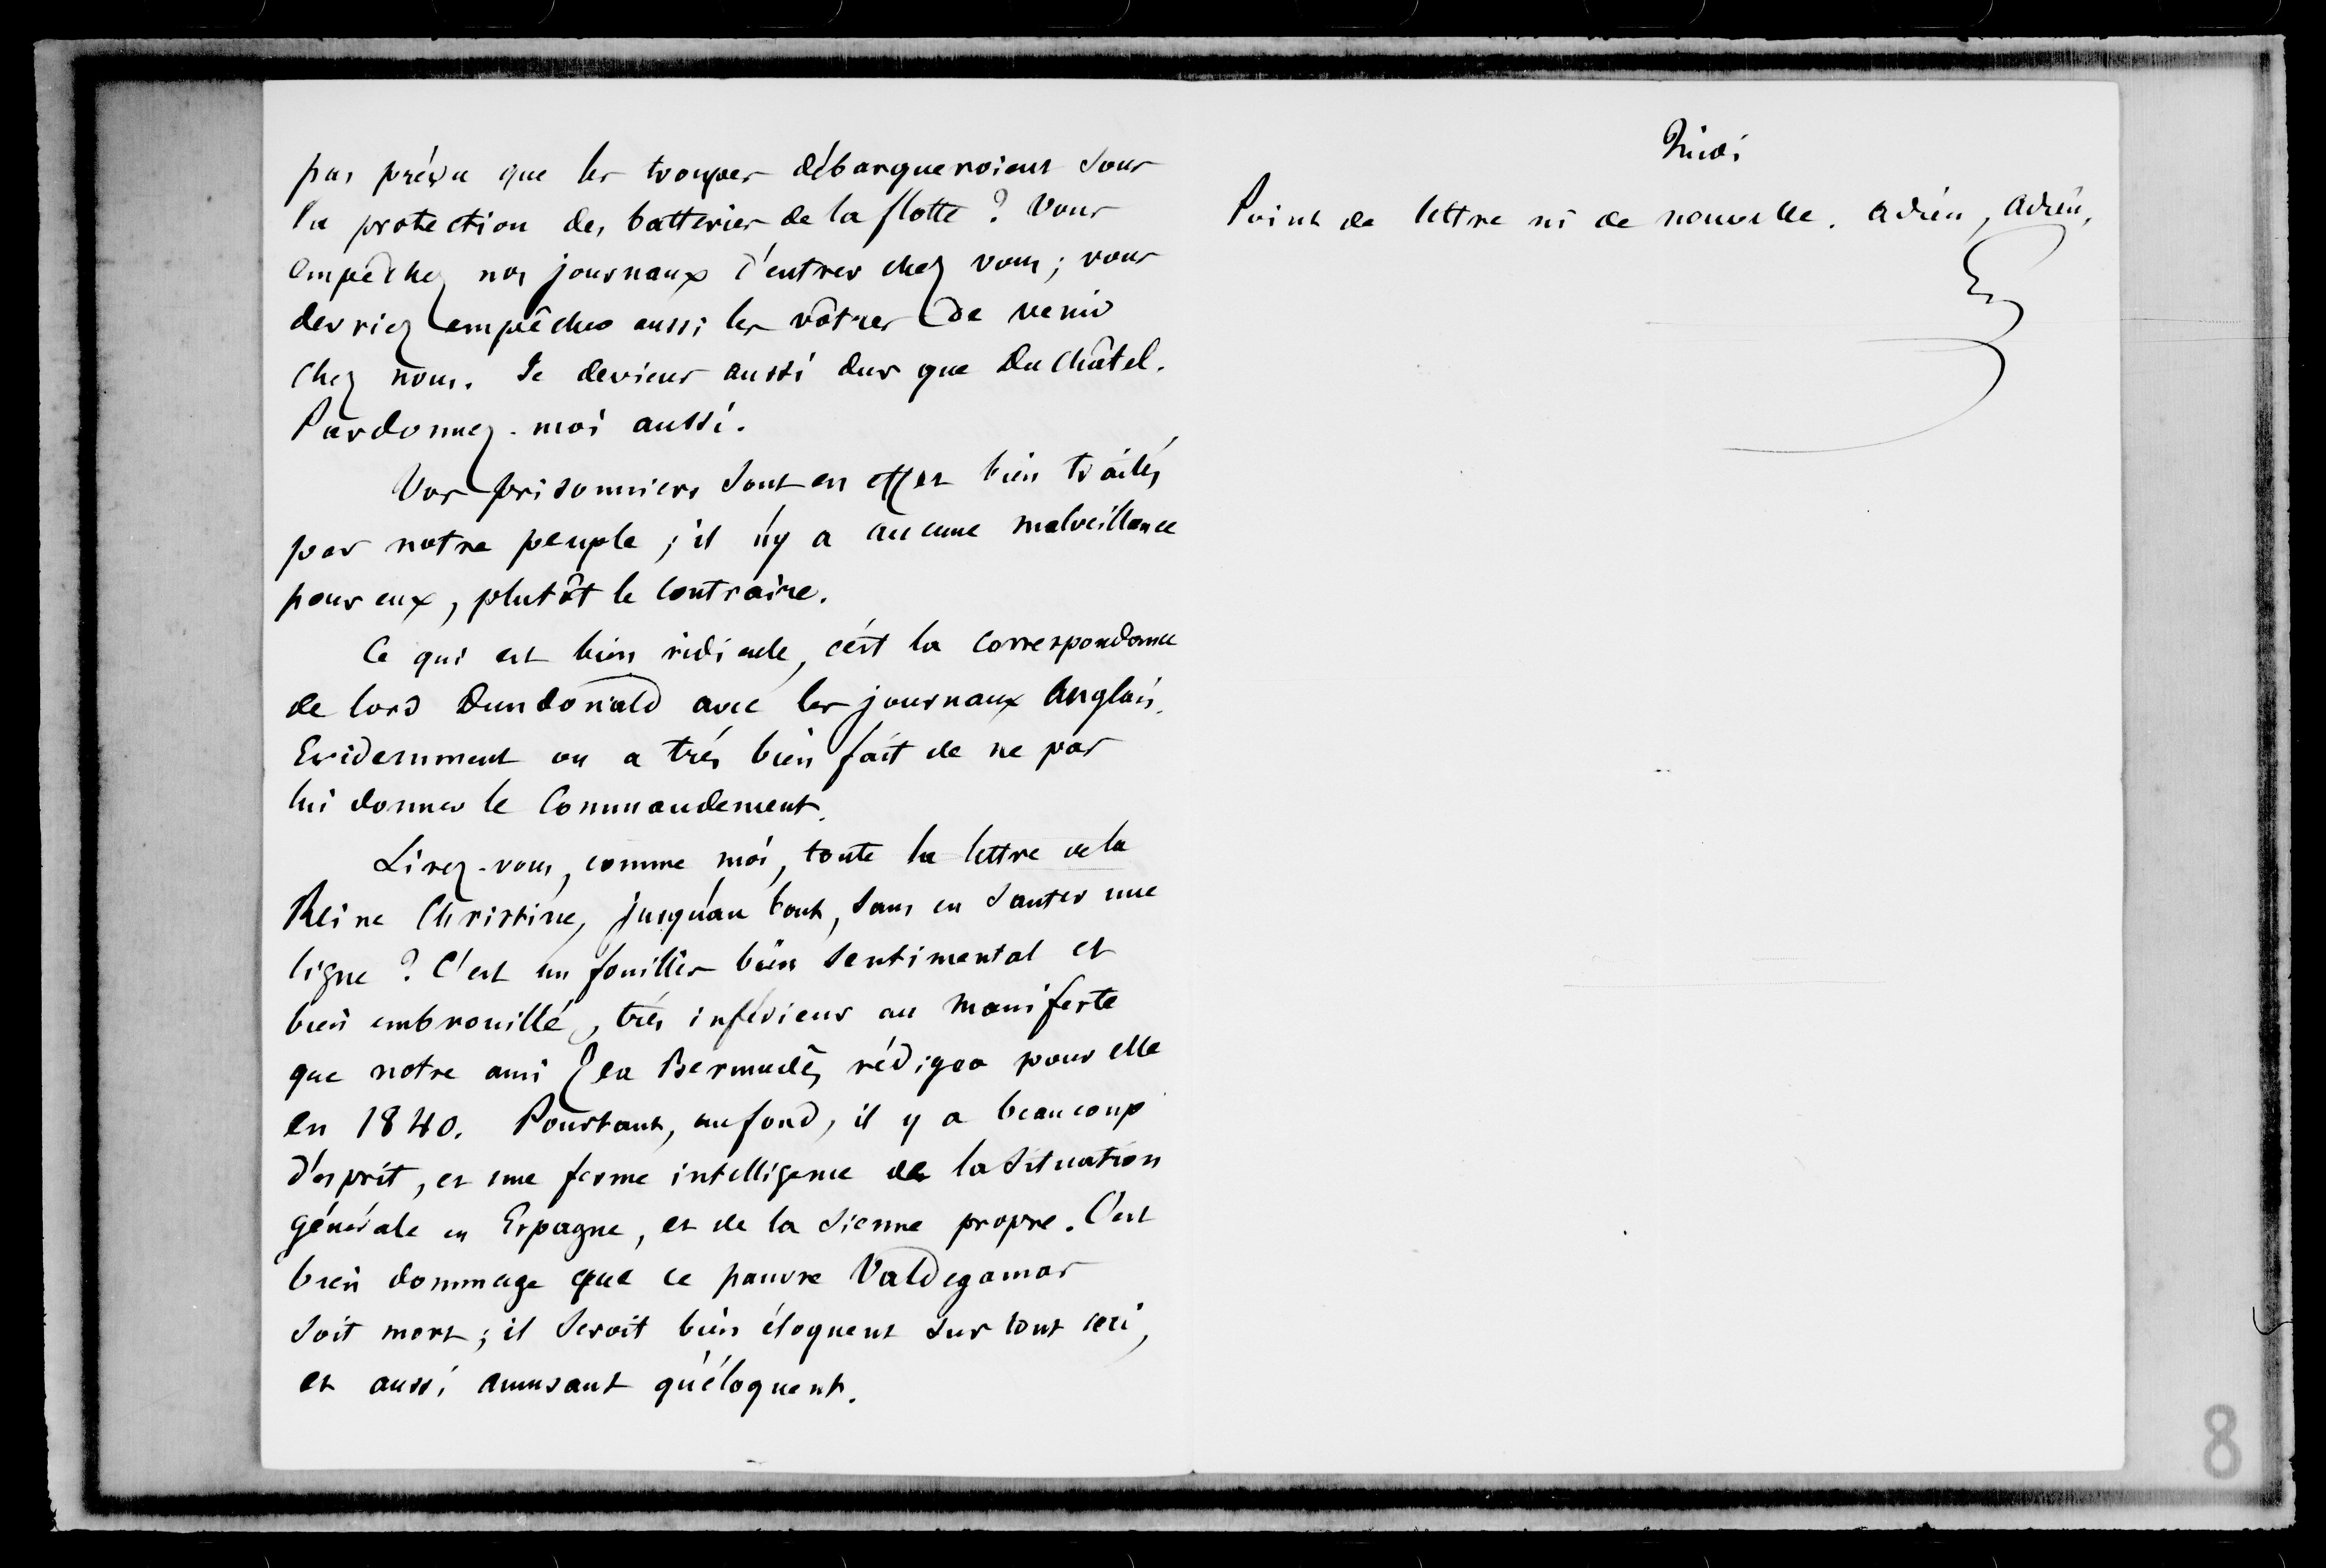 pas prévu que les troupes débarqueroient sous
la protection des batteries de la flotte ? Vous
empêchez nos journaux d'entrer chez vous ; vous
devriez empêcher aussi les vôtres de venir
chez nous. Je deviens aussi dur que Duchâtel.
Pardonnez-moi aussi.
Vos prisonniers sont en effet bien traités
par notre peuple ; il n'y a aucune malveillance
pour eux, plutôt le contraire.
Ce qui est bien ridicule, c'est la correspondance
de lord Dundonald avec les journaux Anglais.
Evidemment on a très bien fait de ne pas
lui donner le Commandement.
Lirez-vous, comme moi, toute la lettre de la
Reine Christine, jusqu'au bout, sans en sauter une
ligne ? C'est un fouillis bien sentimental et
bien embrouillé, très inférieur au manifeste
que notre ami Zea Bermudez rédigea pour elle
en 1840. Pourtant, au fond, il y a beaucoup
d'esprit, et une ferme intelligence de la situation
générale en Espagne, et de la sienne propre. C'est
bien dommage que ce pauvre Valdegamas
soit mort ; il seroit bien éloquent sur tout ceci,
et aussi amusant qu'éloquent.
Midi
Point de lettre ni de nouvelle. Adieu, Adieu.
8